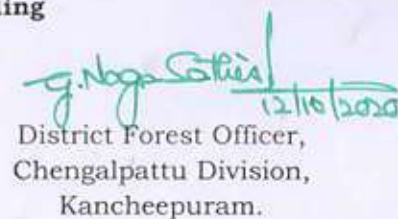 ing
G. Naga Sathies
12/10/2020
District Forest Officer,
Chengalpattu Division,
Kancheepuram.